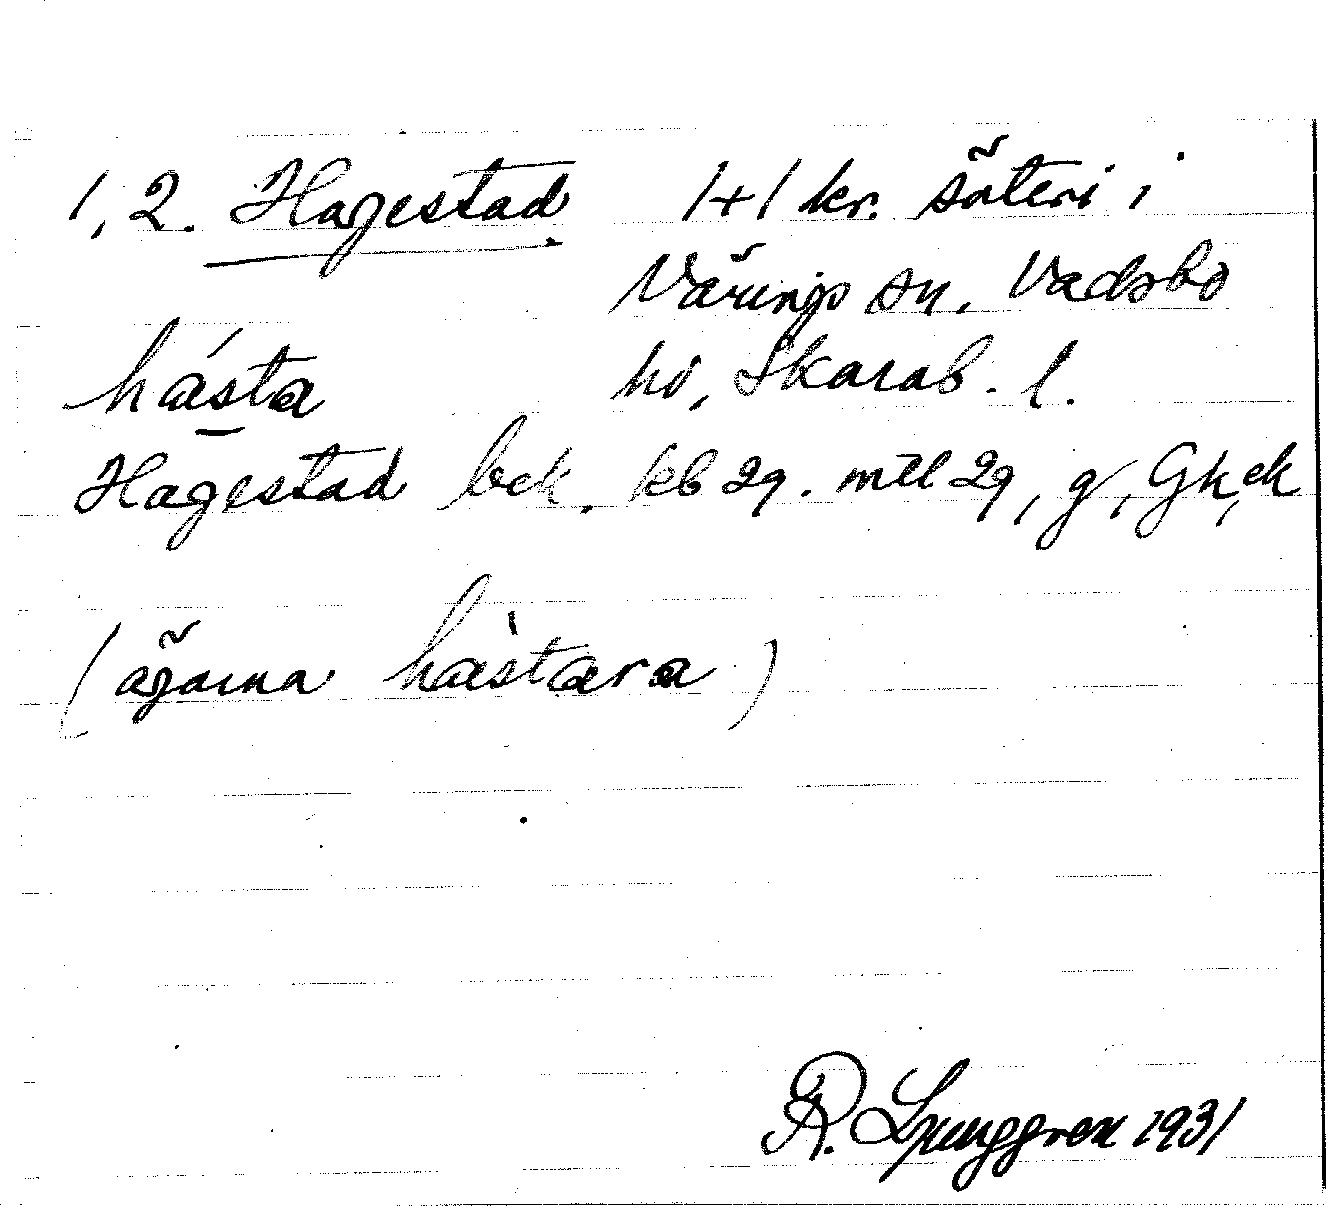 1, 2. Hagestad 1+1 kr. säteri i
Värings sn. Vadsbo
hd, Skarab. l.
hásta
Hagestad bek. kb 29. mtl 29, g, Gk, ek
(ägarna hàstara)
R. Ljunggren 1931